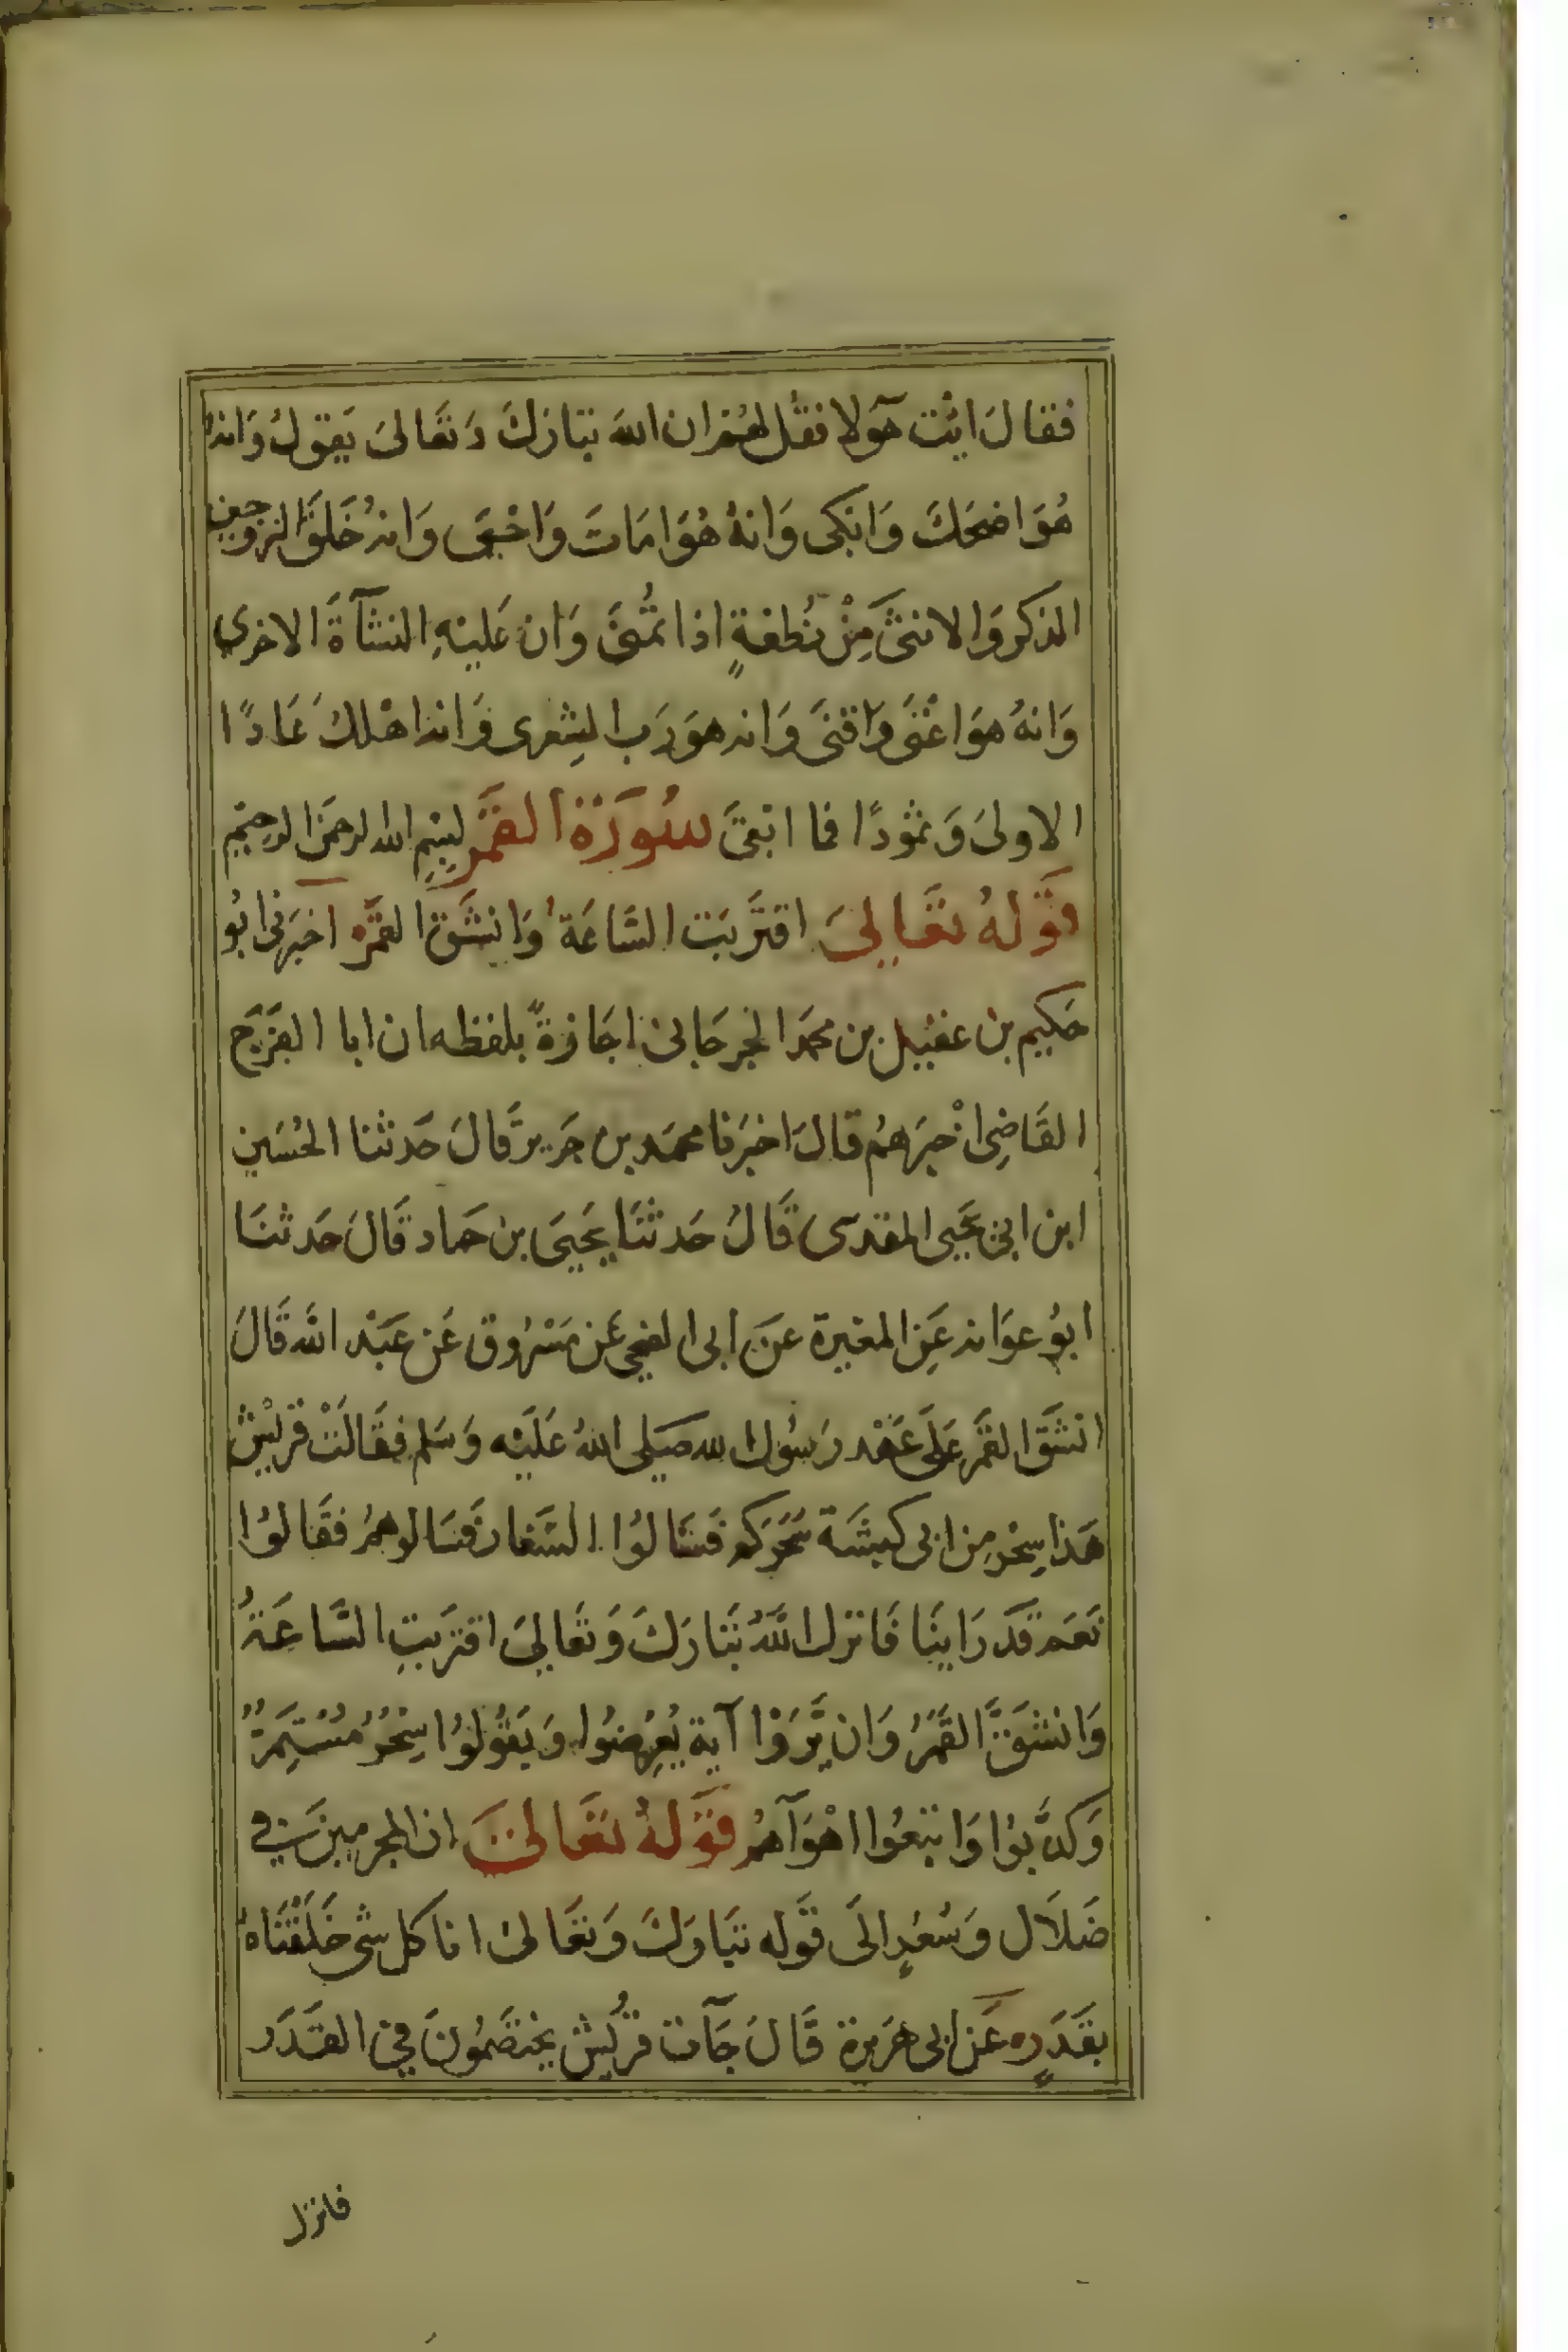 فقالَ ائت هَؤلا فقل لهُم ان الله تبارَكَ وَتعَالىَ يَقولُ وَانهُ
هُوَ اضحَكَ وَابَكى وَانهُ هُوَ امَاتَ وَاحْيَى وَانهُ خَلَقَ الزوجين
الذكر وَالانثىَ مِنْ نُطفةٍ اذا تُمْنىَ وَان عَليْهِ النشآةَ الاخرى
وَانهُ هوَ اغْنىَ وَاقنىَ وَانه هوَ رَب الشِعرى وَانه اهْلكَ عَادًا
الاولىَ وَثمُودًا فما ابْقىَ سُورَةُ القَمَر بِسْمِ الله الرحمَن الرحِيم
قَولهُ تعَالىَ اقترَبَت السَّاعَة وَانشَقَ القمَرُ اخبرَني ابُو
حَكيم بن عقيل بن محمد الجرجاني اجَازةً بلفظه ان ابا الفَرَج
القَاضِي اخْبرَهمُ قالَ اخبَرَنا محمَد بن جَرير قَالَ حَدثنا الحُسَين
ابن ابي يحَيى المقدسى قَالَ حَدثنَا يَحيىَ بن حماد قَالَ حَدثنَا
ابوُ عوَانه عَنِ المغيرة عَن ابى الضحي عَن مَسْرُوق عَن عَبْد الله قَالَ
انشَقَّ القَمَر عَلىَ عَهْد رَسُول الله صَلى اللهُ عَلَيْه وَسَلم فقَالَتْ قريْش
هَذا سِحْر مِن ابى كبشَة سَحَركم فسَالوُا السّفار فسَالوهمُ فقَالوُا
نَعَم قَد رَاينَا فَانزل اللهُ تَبَارَكَ وَتعَالىَ اقترَبتِ السَّاعَةُ
وَانشقَّ القَمَرُ وَان يَّرَوْا آية يُعِرْضوُا وَيَقُولوُا سِحْرُ مُسْتمِرٌ
وَكذَّبوُا وَاتبَعُوا اهْوَآهمُ قَولهُ تعَالىَ ان المجرمين في
ضَلاَل وَسُعُرٍ الىَ قَوله تبَارَكَ وَتعَالىَ انا كل شى خَلَقْنَاهُ
بقَدَرٍ ه عَن ابى هرَيرة قَالَ جَآت قرُيش يختصَمُونَ في القَدَر
فانزل